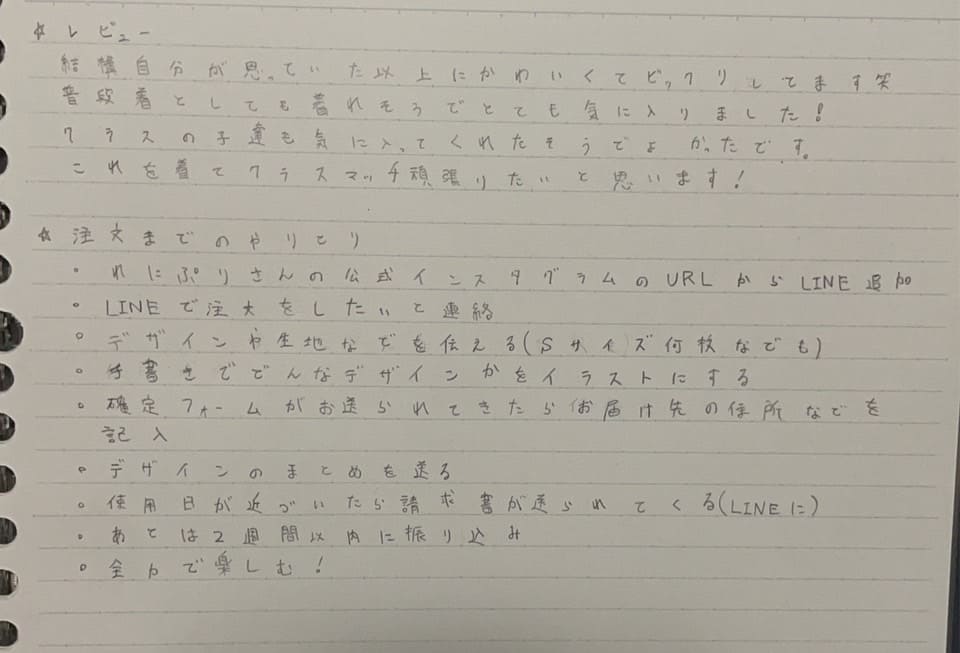 ☆ レビュー
結構自分が思っていた以上にかわいくてビックリしてます笑
普段着としても着れそうでとても気に入りました!
クラスの子達も気に入ってくれたそうでよかったです。
これを着てクラスマッチ頑張りたいと思います!
☆ 注文までのやりとり
• れにぷりさんの公式インスタグラムのURLからLINE追加
• LINEで注文をしたいと連絡
• デザインや生地などを伝える(Sサイズ何枚なども)
• 手書きでどんなデザインかをイラストにする
• 確定フォームがお送られてきたらお届け先の住所などを
記入
• デザインのまとめを送る
• 使用日が近づいたら請求書が送られてくる(LINEに)
• あとは2週間以内に振り込み
• 全力で楽しむ!